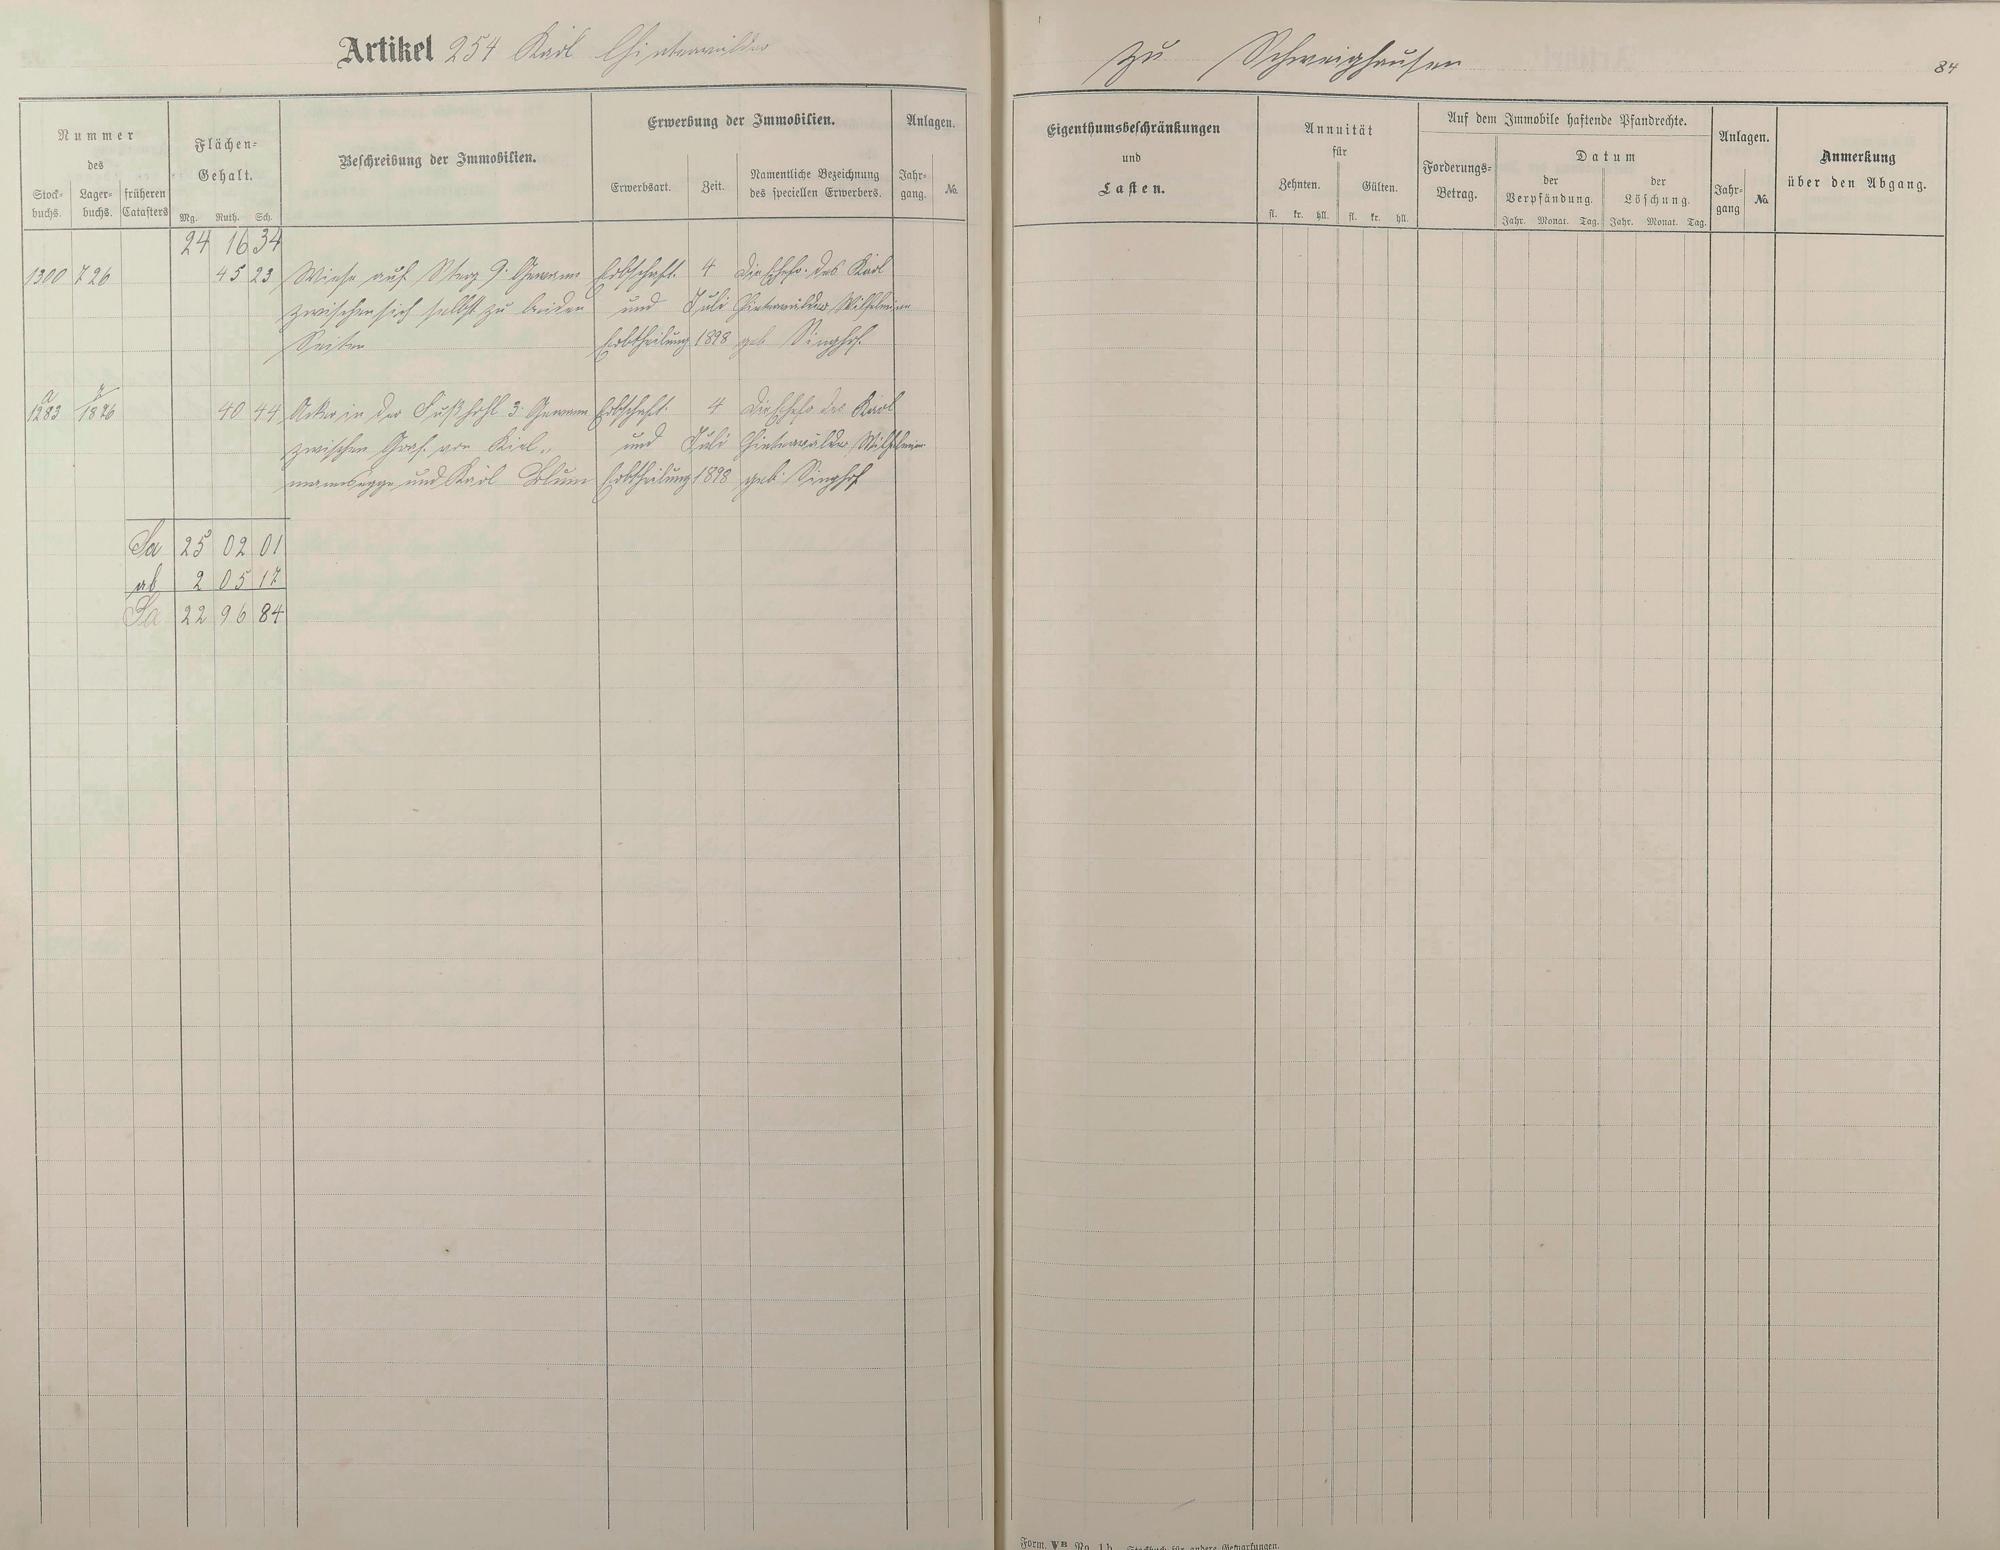 Artikel 254 Karl Hinterwälder
zu Schweighausen
84
Nummer
des
Stock-
buchs.
Lager-
buchs.
früheren
Catasters
Flächen-
Gehalt.
Mg. Ruth. Sch.
Beschreibung der Immobilien.
Erwerbung der Immobilien.
Erwerbsart.
Zeit.
Namentliche Bezeichnung
des speciellen Erwerbers.
Anlagen.
Jahr-
gang.
No.
Eigenthumsbeschränkungen
und
Lasten.
Annuität
für
Zehnten.
Gülten.
fl. kr. hll. fl. kr. hll.
Auf dem Immobile haftende Pfandrechte.
Forderungs-
Betrag.
Datum
der
Verpfändung.
der
Löschung.
Jahr. Monat. Tag. Jahr. Monat. Tag.
Anlagen.
Jahr-
gang
No.
Anmerkung
über den Abgang.
24 16 34
1300 726 45 23 Wiese auf 9. Gewann Erbschaft. 4 Die Ehefr. des Karl
zwischen sich selbst zu beiden und Juli Hinterwälder, Wilhelmine
Seiten Erbtheilung 1898 geb. Singhof.
a
1283 1826 40 44 Acker in der Fußhohl 3. Gewann Erbschaft. 4 Die Ehefr. des Karl
zwischen Graf. von Kiel- und Juli Hinterwälder, Wilhelmine
mannsegge und Karl Blum Erbtheilung 1898 geb. Singhof
Sa 25 02 01
ab 2 05 17
Sa 22 96 84
Form. WB No. 1b. Stockbuch für andere Gemarkungen.